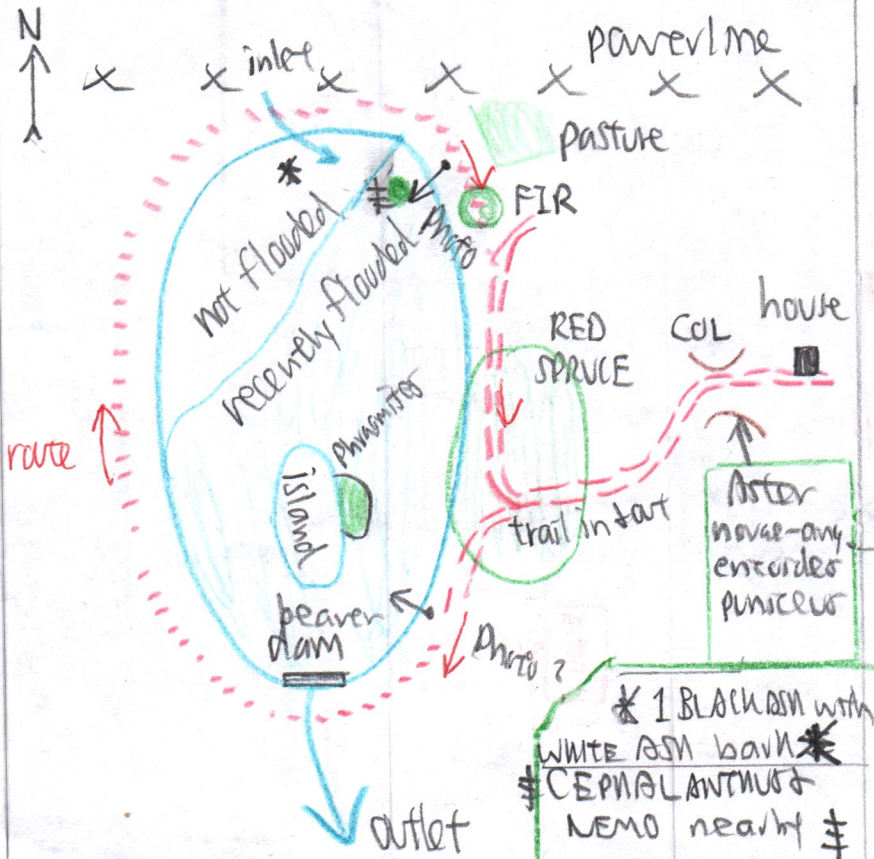 N
powerline
inlet
pasture
FIR
Photo
not flooded
recently flooded
RED
SPRUCE
COL
house
Phragmites
route
island
trail in & out
Aster
novae-ang
ericoides
puniceus
beaver
dam
Photo ?
* 1 BLACK ASH with
WHITE ASH bark *
CEPHALANTHUS &
NEMO nearby
outlet